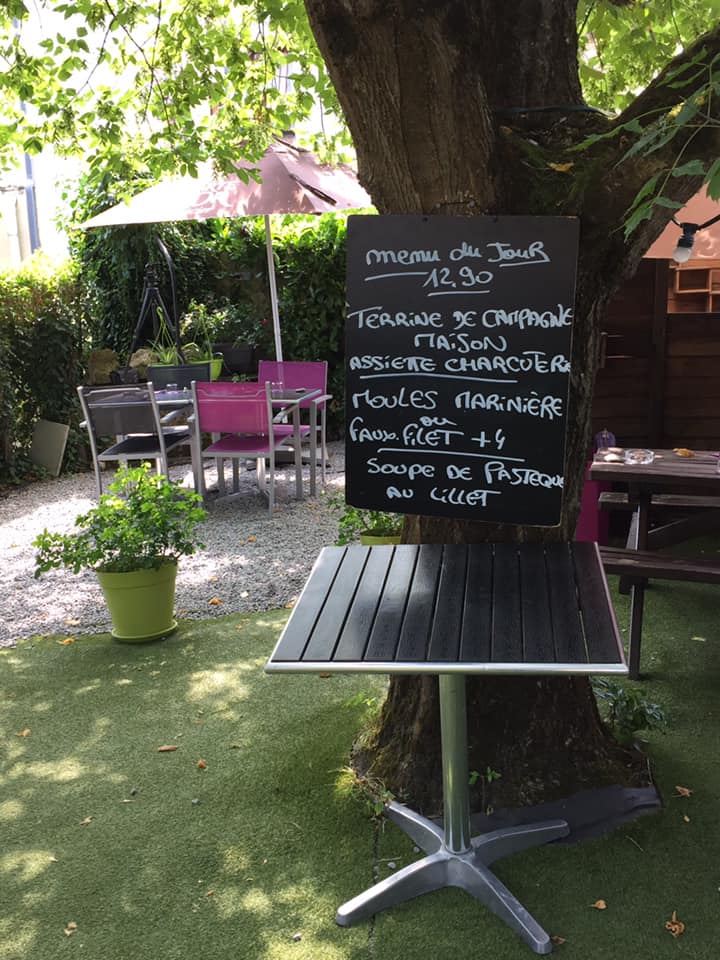 menu du JouR
12,90
TERRINE DE CAMPAGNE
MAISON
ASSIETTE CHARCUTERIE
MOULES MARINIÈRE
ou
FAUX.FILET +4
SOUPE DE PASTEQUE
AU LILLET